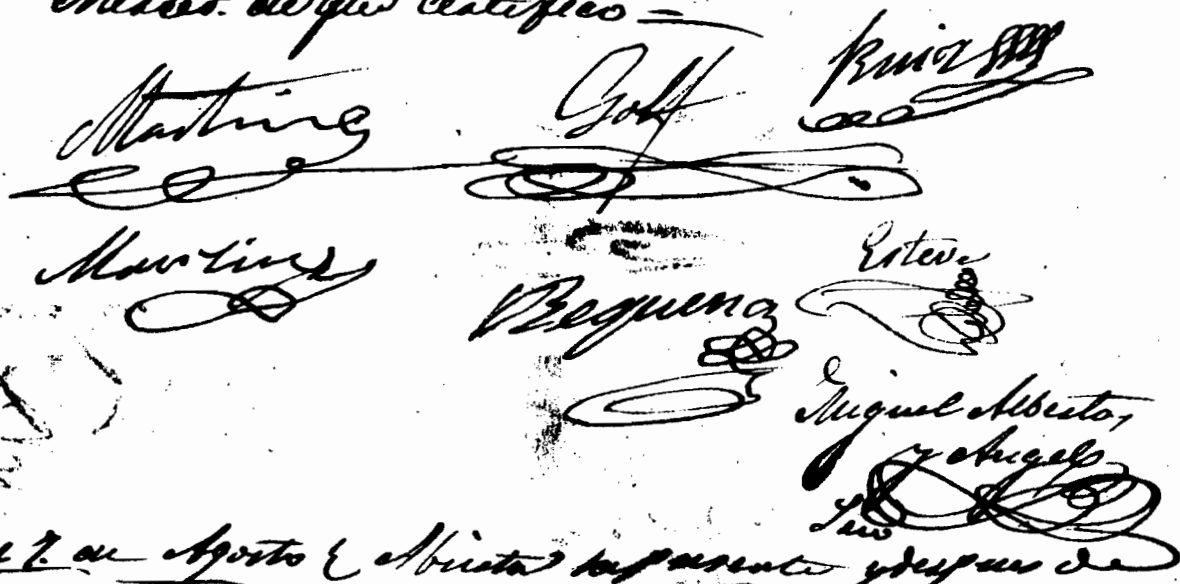 de que certifico =
Martinez Golf Ruiz
Martinez Esteve
Requena
Miguel Alberto
y Angel
Srio
7. de Agosto Abierta la presente y despues de